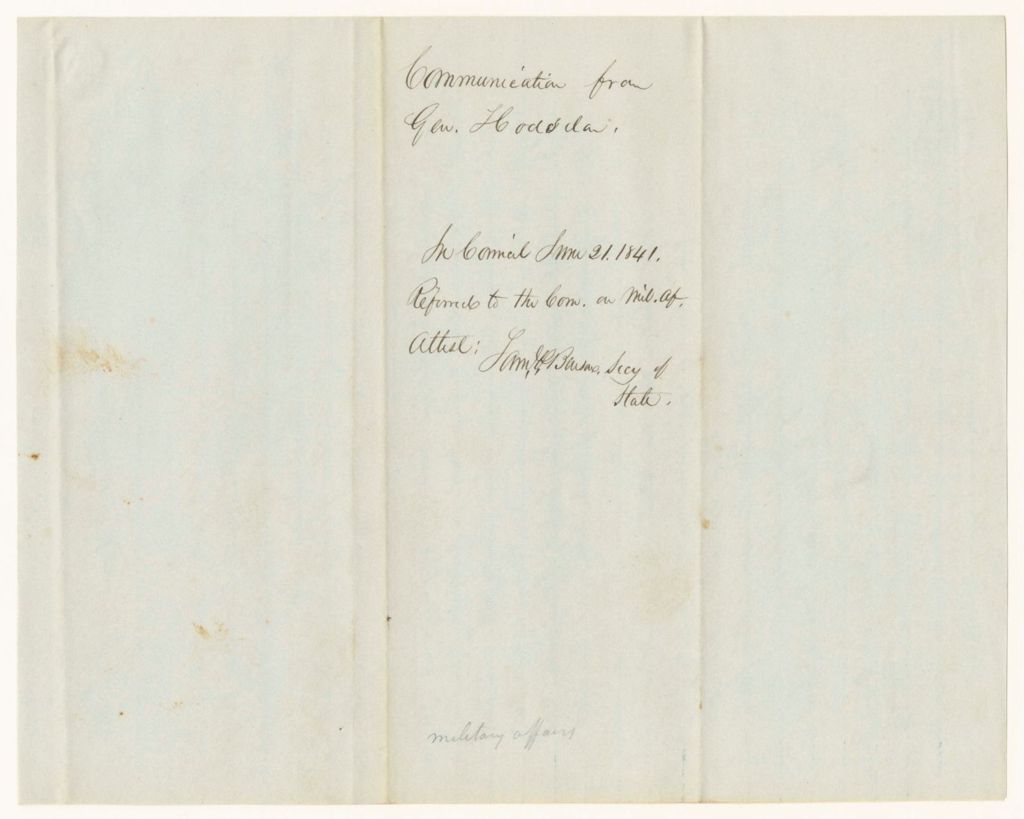 Communication from
Gen. Hodsdon.
In Council June 21. 1841.
Referred to the Com. on Mil. Af.
Attest:
Sam. P. Benson, Secy of
State.
military affairs